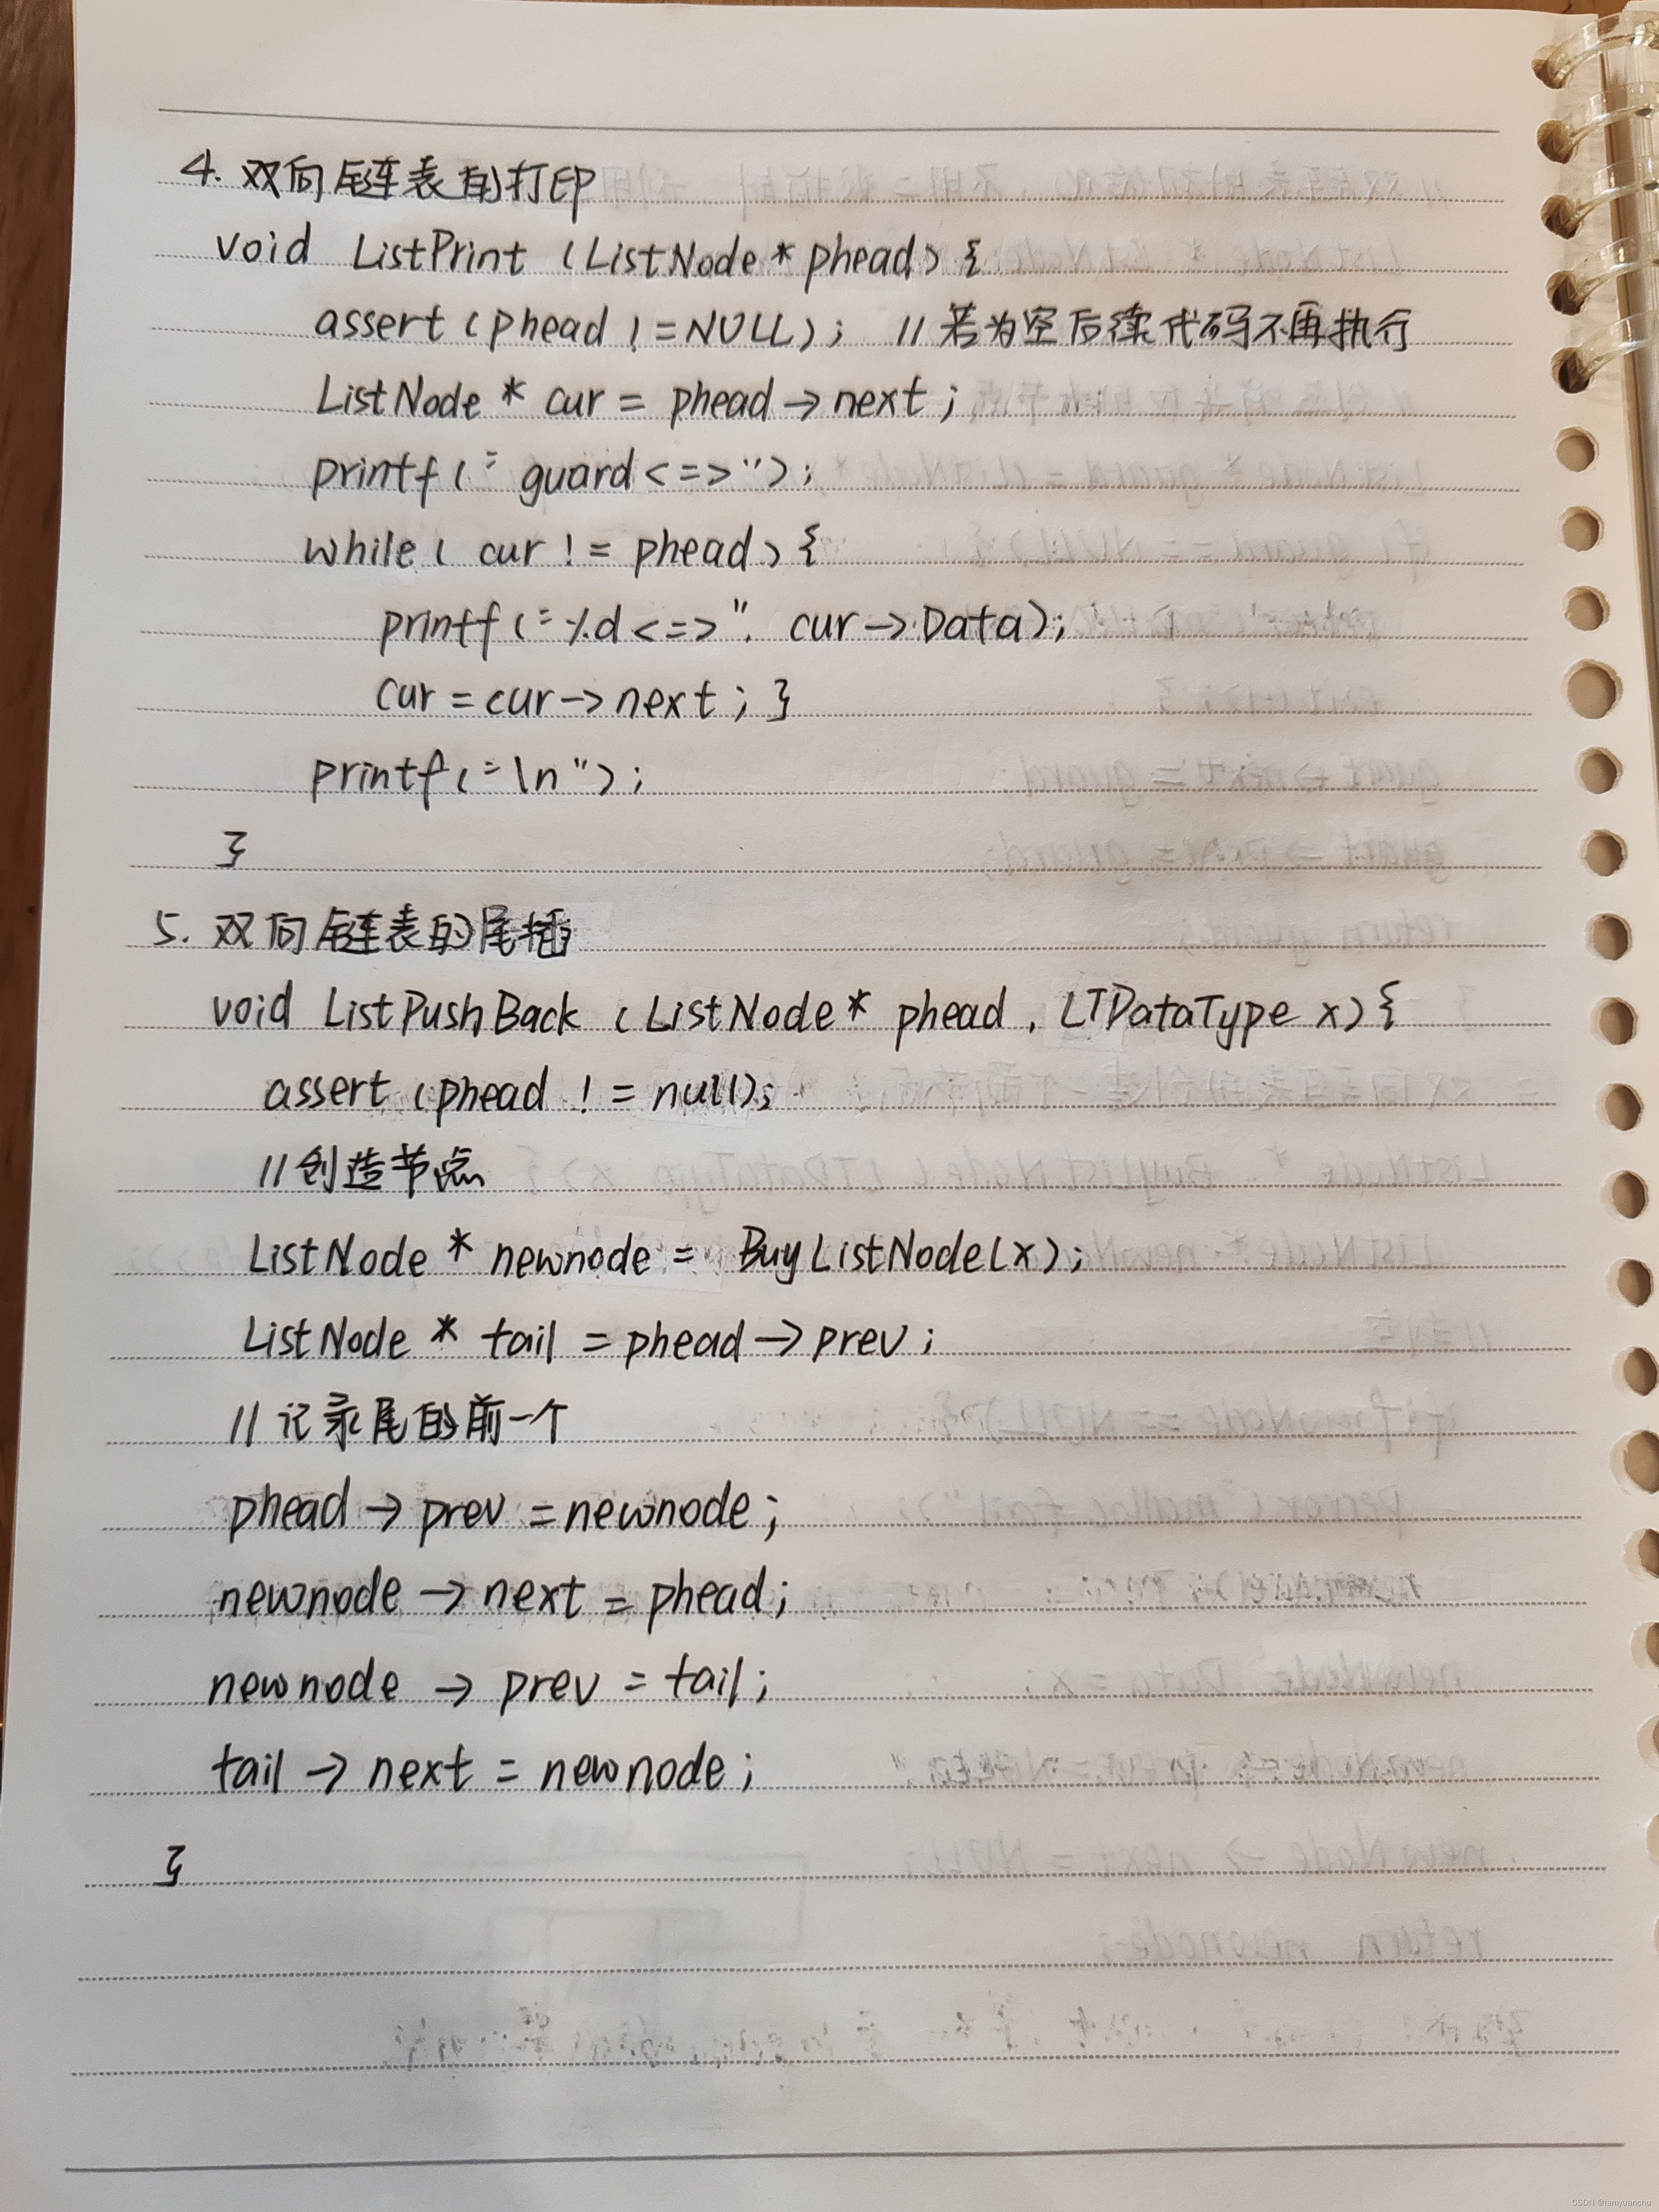 4. 双向链表的打印
void ListPrint (ListNode * phead) {
assert (phead != NULL); // 若为空后续代码不再执行
ListNode * cur = phead -> next ;
printf (" guard <=>");
while ( cur != phead) {
printf ("%d <=>", cur -> Data);
cur = cur -> next ; }
printf ("\n");
}
5. 双向链表的尾插
void ListPushBack (ListNode * phead, LTDataType x) {
assert (phead != null);
// 创造节点
ListNode * newnode = BuyListNode(x);
ListNode * tail = phead -> prev ;
// 记录尾的前一个
phead -> prev = newnode ;
newnode -> next = phead ;
newnode -> prev = tail ;
tail -> next = newnode ;
}
CSDN @iamyuanchu